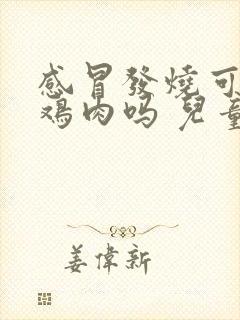 感冒發燒可
鸡肉吗 兒童
姜偉新